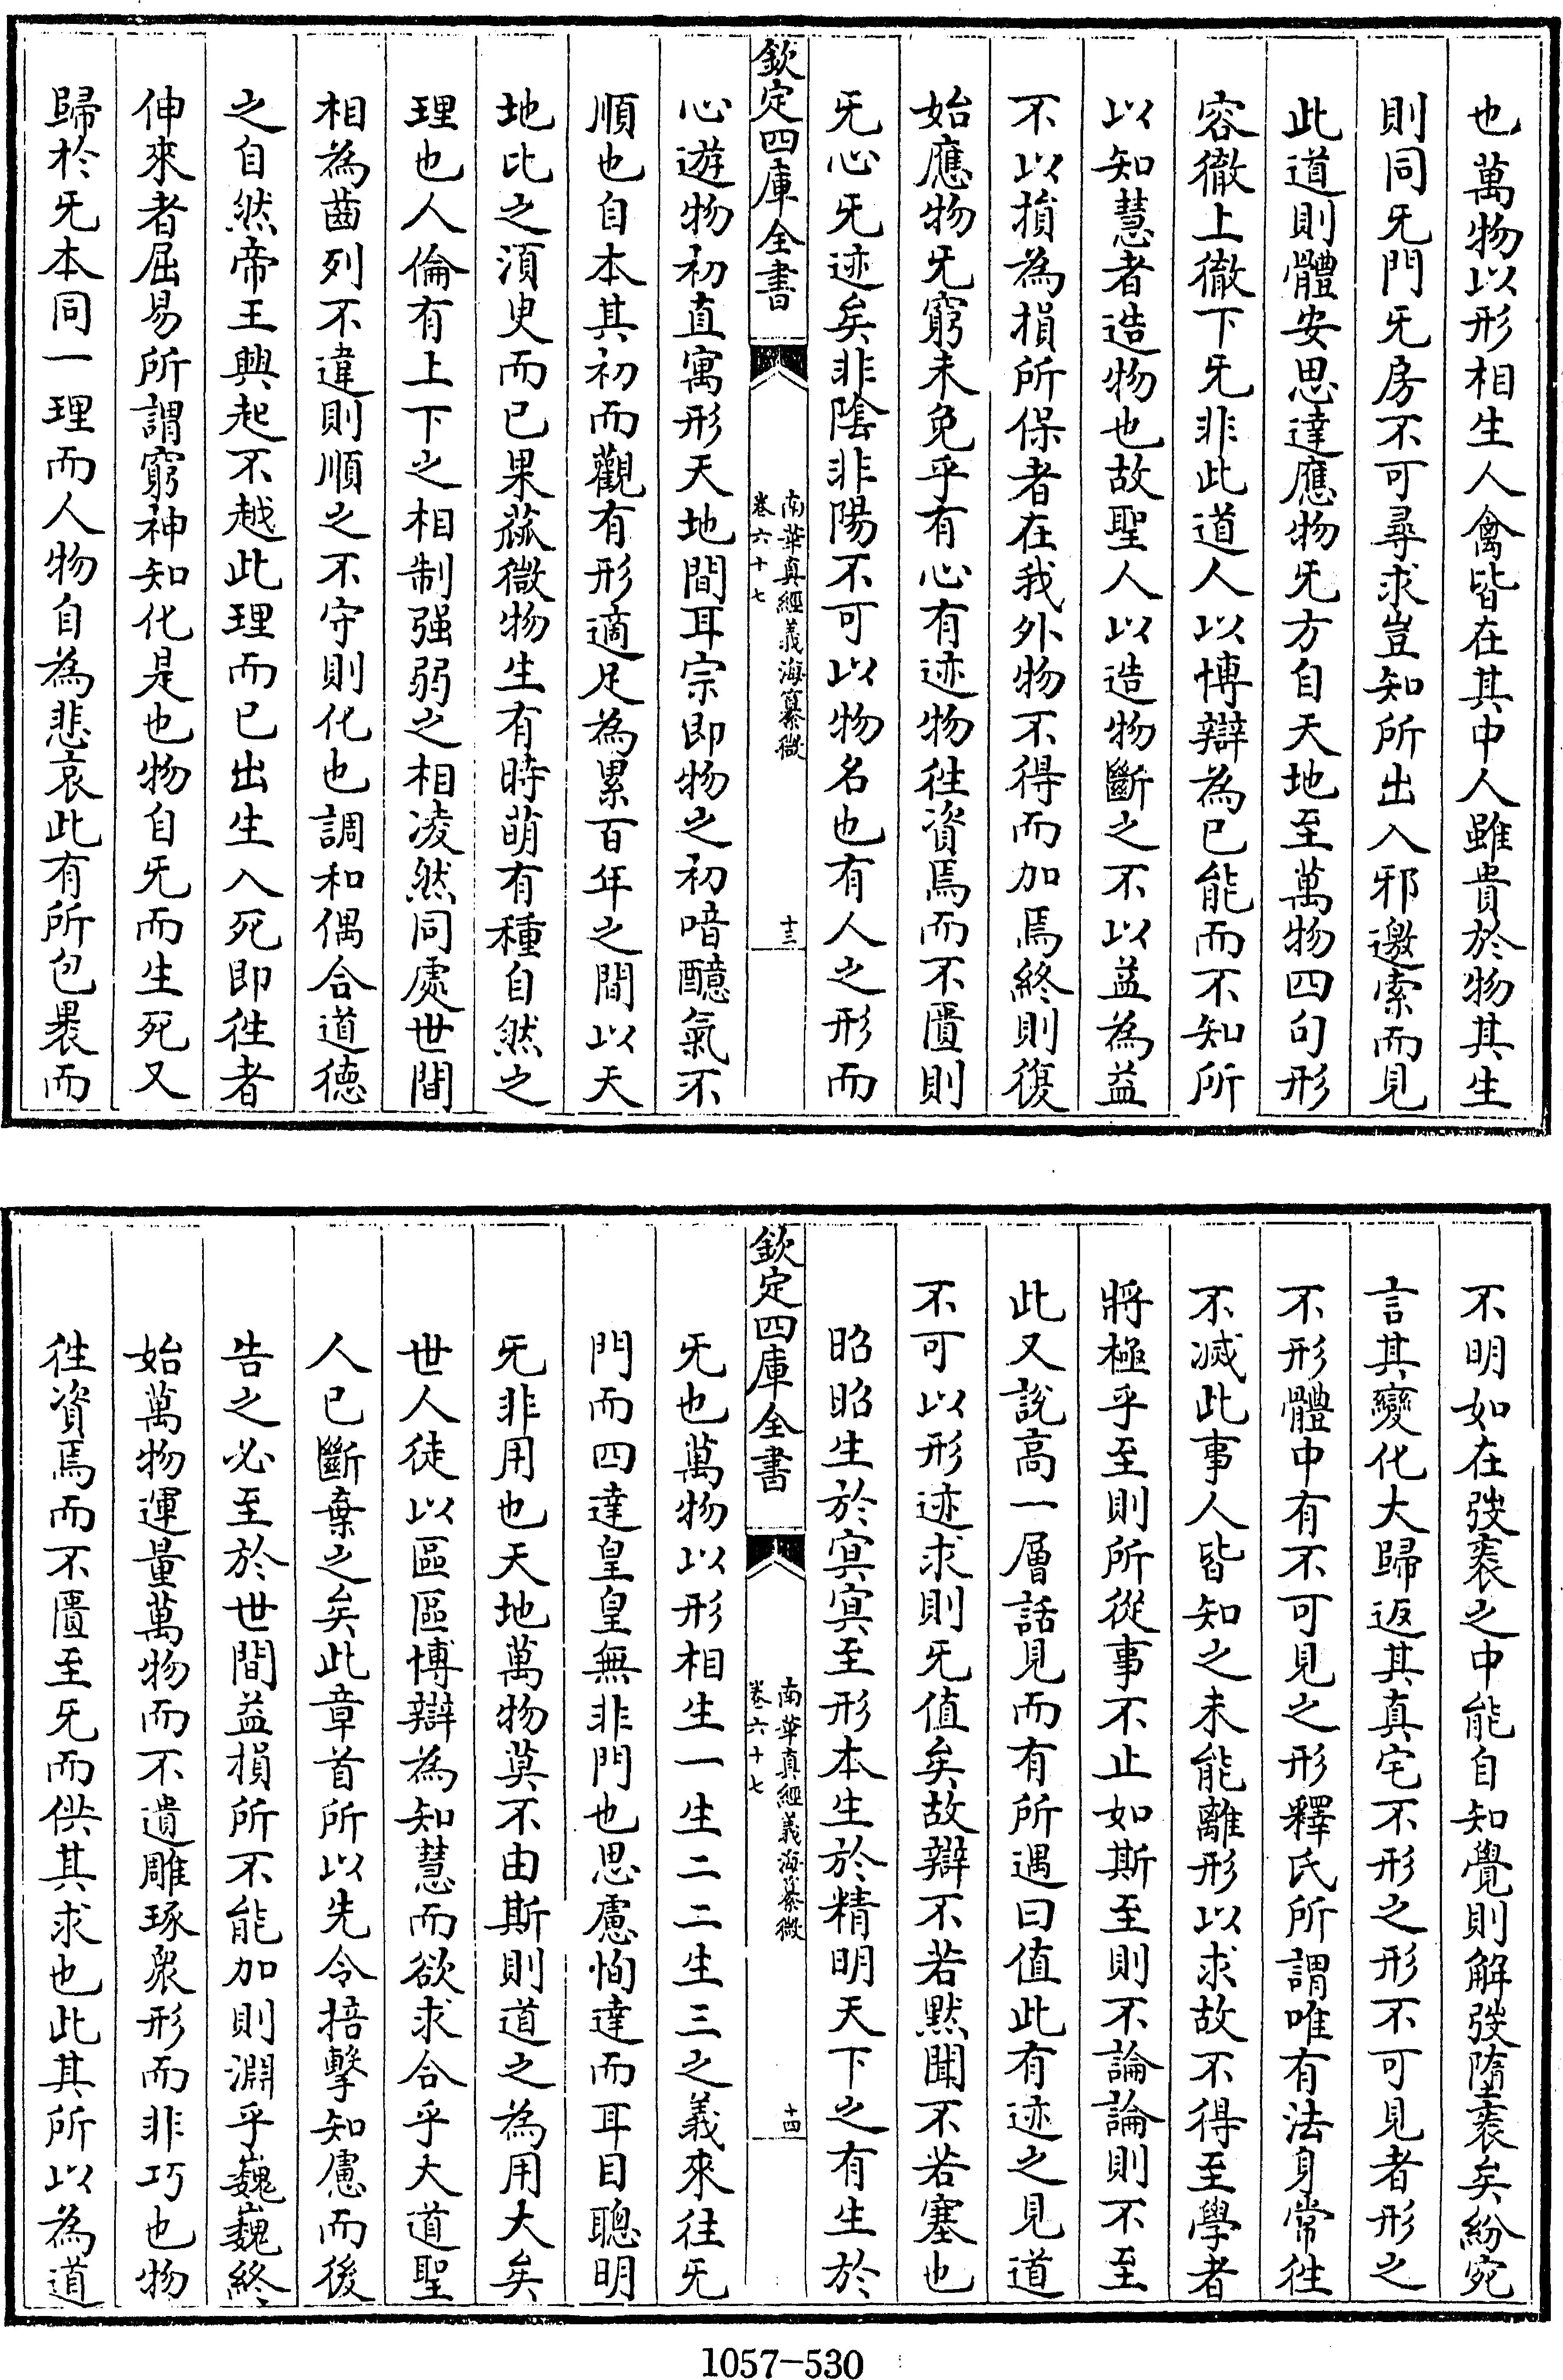 也萬物以形相生人禽皆在其中人雖貴於物其生
則同旡門旡房不可尋求豈知所出入邪邀索而見
此道則體安思達應物旡方自天地至萬物四句形
容徹上徹下旡非此道人以博辯為已能而不知所
以知慧者造物也故聖人以造物斷之不以益為益
不以損為損所保者在我外物不得而加焉終則復
始應物旡窮未免乎有心有迹物徃資焉而不匱則
旡心旡迹矣非陰非陽不可以物名也有人之形而
欽定四庫全書
南華真經義海纂微
卷六十七
十三
心遊物初直寓形天地間耳宗即物之初喑醷氣不
順也自本其初而觀有形適足為累百年之間以天
地比之湏臾而已果蓏微物生有時萌有種自然之
理也人倫有上下之相制强弱之相凌然同處世間
相為齒列不違則順之不守則化也調和偶合道德
之自然帝王興起不越此理而已出生入死即徃者
伸來者屈易所謂窮神知化是也物自旡而生死又
歸於旡本同一理而人物自為悲哀此有所包裹而
不明如在弢袠之中能自知覺則解弢墮袠矣紛宛
言其變化大歸返其真宅不形之形不可見者形之
不形體中有不可見之形釋氏所謂唯有法身常徃
不滅此事人皆知之未能離形以求故不得至學者
將極乎至則所從事不止如斯至則不論論則不至
此又說高一層話見而有所遇曰值此有迹之見道
不可以形迹求則旡值矣故辯不若黙聞不若塞也
昭昭生於冥冥至形本生於精明天下之有生於
欽定四庫全書
南華真經義海纂微
卷六十七
十四
旡也萬物以形相生一生二二生三之義來往旡
門而四達皇皇無非門也思慮恂達而耳目聰明
旡非用也天地萬物莫不由斯則道之為用大矣
世人徒以區區博辯為知慧而欲求合乎大道聖
人已斷棄之矣此章首所以先令掊擊知慮而後
告之必至於世間益損所不能加則淵乎巍巍終
始萬物運量萬物而不遺雕琢衆形而非巧也物
徃資焉而不匱至旡而供其求也此其所以為道
1057-530